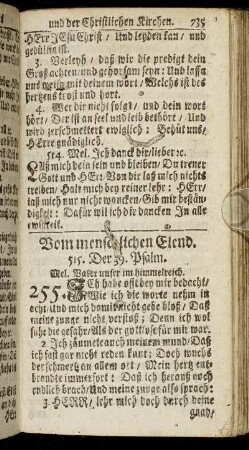 und der Christlichen Kirchen. 735
HErr JEsu Christ/ Und leyden kan/ und
gedültig ist.
3. Verleyh/ daß wir die predigt dein
Groß achten/ und gehorsam seyn: Und lassn
uns weisn mit deinem wort/ Welchs ist des
hertzens trost und hort.
4. Wer dir nicht folgt/ und dein wort
hört/ Der ist an seel und leib bethört/ Und
wird zerschmettert ewiglich: Behüt uns/
HErre gnädiglich.
514. Mel. Ich danck dir/lieber ꝛc.
Laß mich dein sein und bleiben/ Du treuer
Gott und HErr: Von dir laß mich nichts
treiben/ Halt mich bey reiner lehr: HErr/
laß mich nur nicht wancken/ Gib mir bestän-
digkeit: Dafür wil ich dir dancken In alle
ewikeit.
Vom menschlichen Elend.
515. Der 39. Psalm.
Mel. Vatter unser im himmelreich.
255. ICh habe offt bey mir bedacht/
Wie ich die worte nehm in
acht: Und mich damit nicht gebe bloß/ Daß
meine zunge nicht verstoß; Denn ich wol
sahe die gefahr/ Als der gottlose für mir war.
2. Ich zäumete auch meinem mund/ Daß
ich fast gar nicht reden kunt; Doch wuchs
der schmertz an allem ort/ Mein hertz ent-
brandte immerfort: Daß ich herauß noch
endlich brach/ Und meine zunge also sprach:
3. HERR/ lehr mich doch durch deine
gnad/